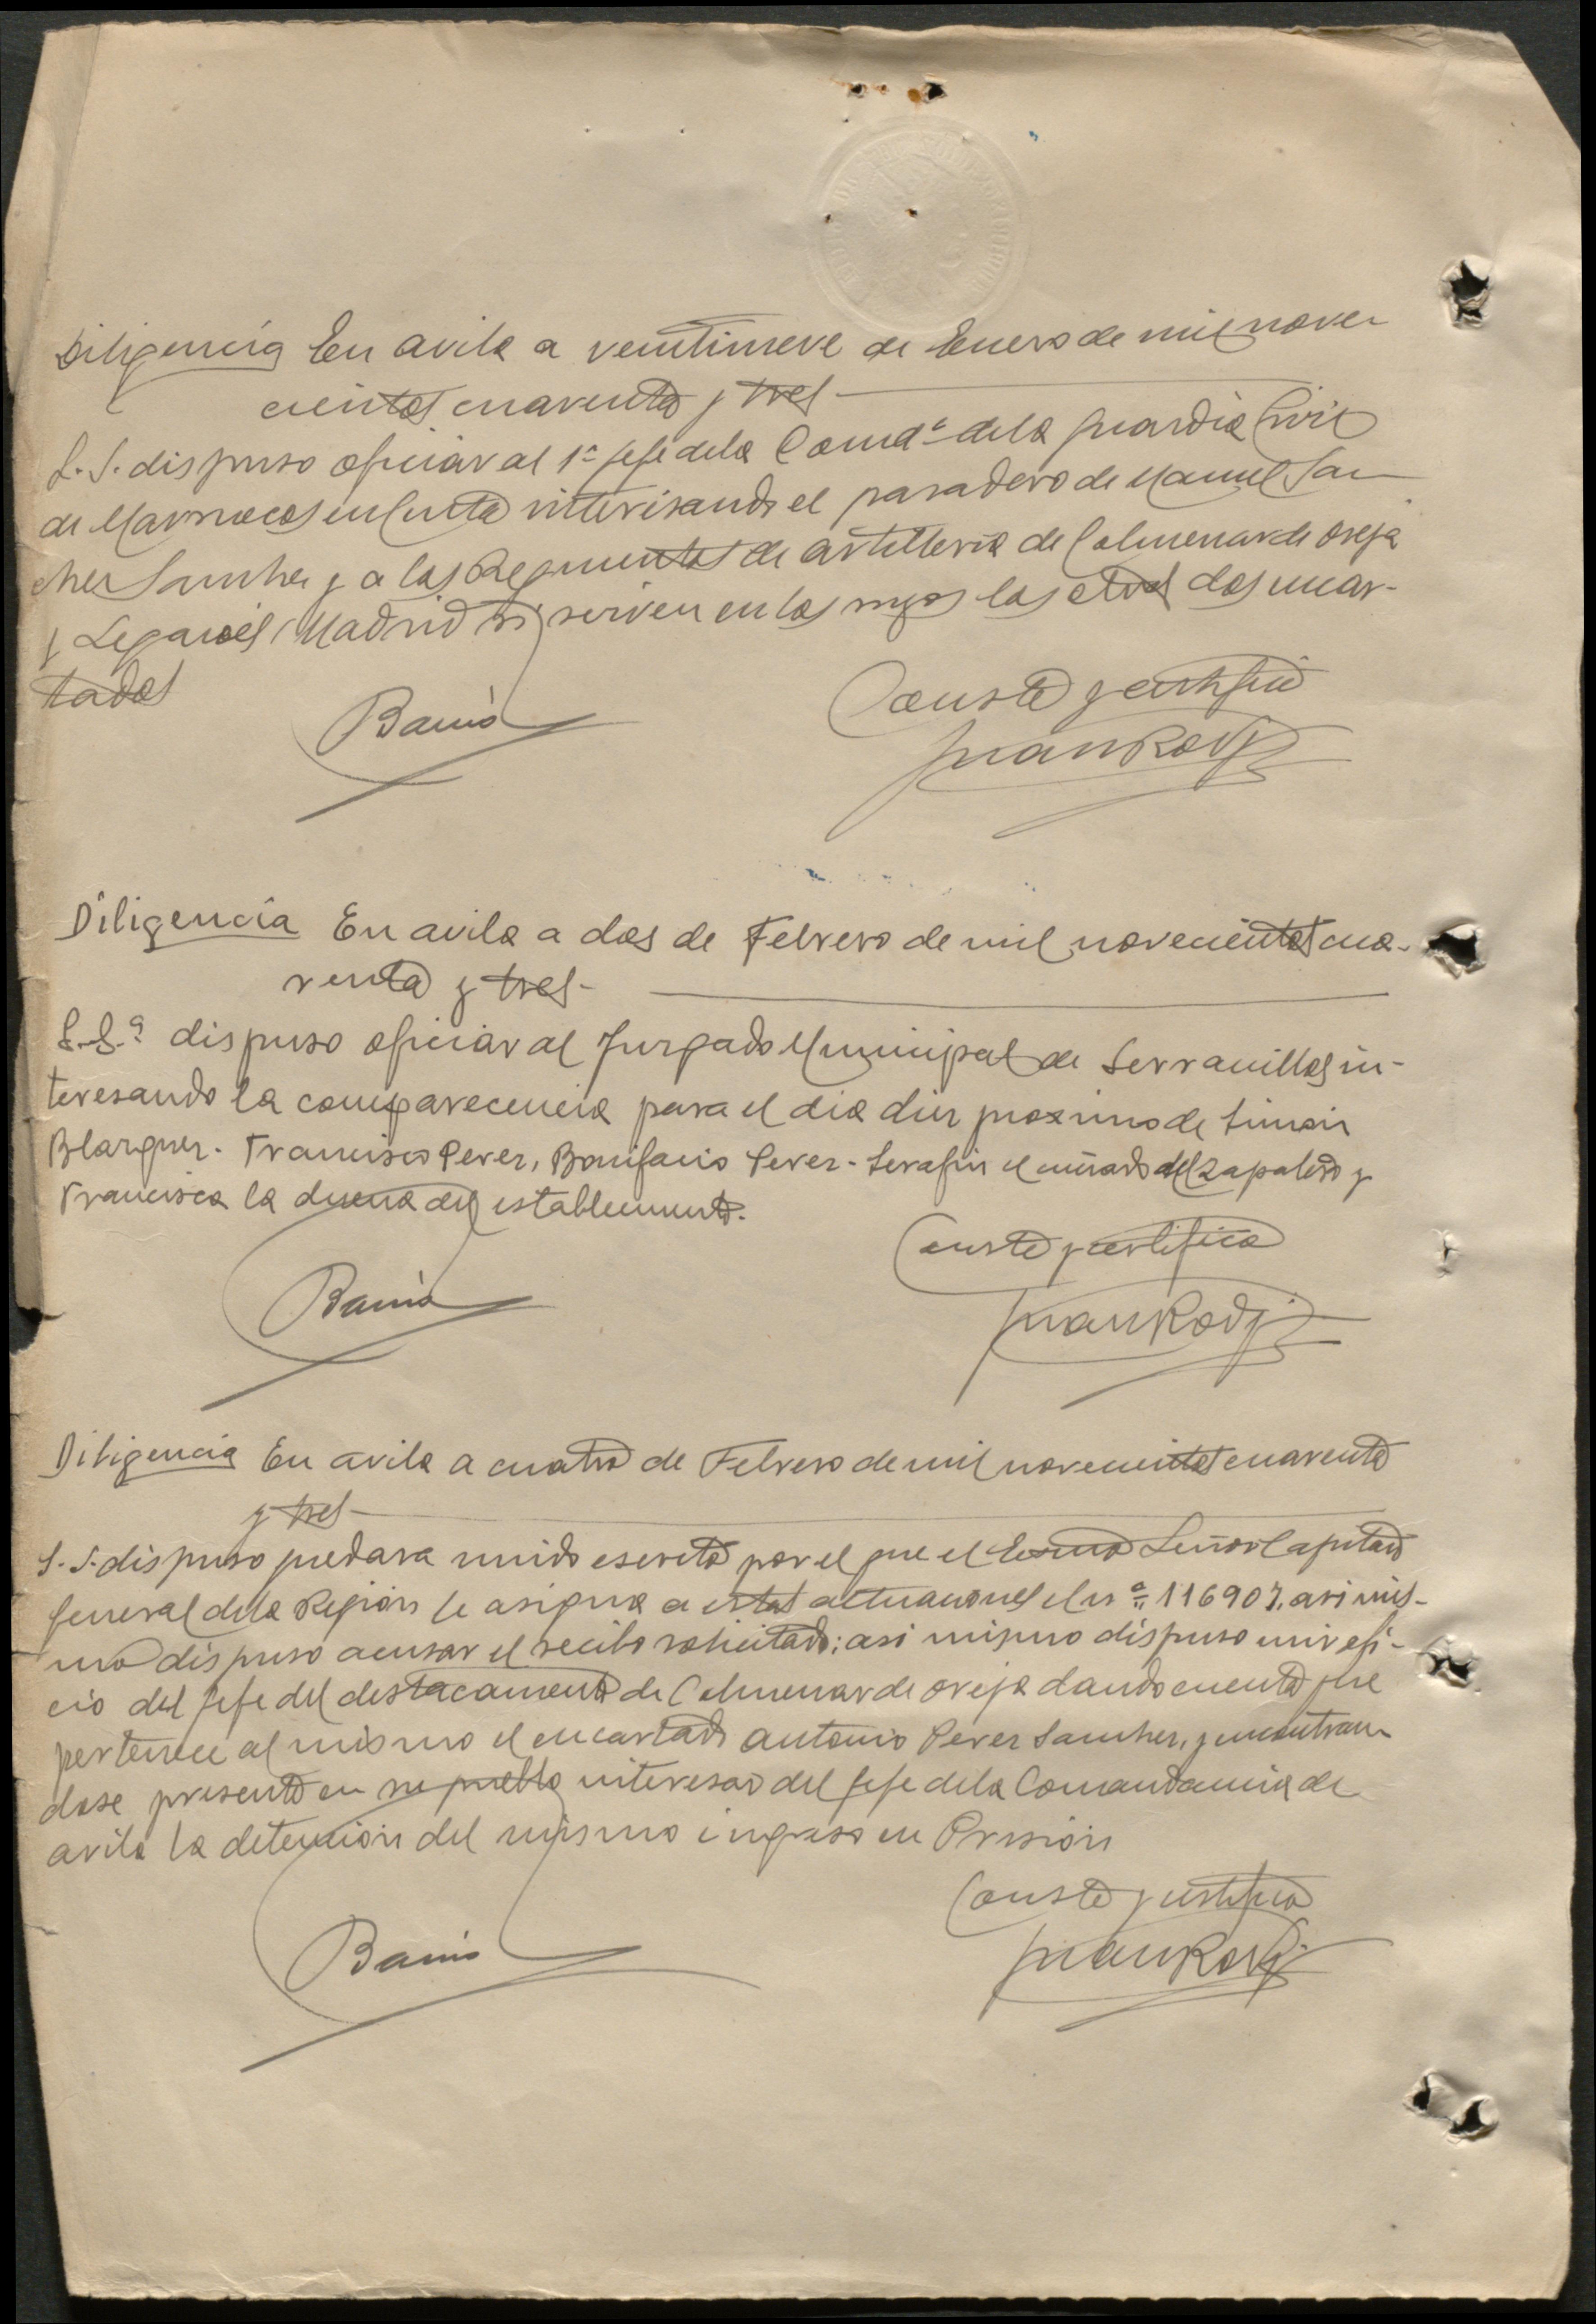 Diligencia En avila a veintinueve de Enero de mil nove
cientos cuarenta y tres-
S. S. dispuso oficiar al 1º jefe dela Comdª dela guardia Civil
de Marruecos en Ceuta interisando el paradero de Manuel San
chez Sanchez y a los Regimientos de artilleria de Colmenar de Oreja
y Leganés (Madrid si sirven en los myos los otros dos encar-
tados
Conste y certifico
Juan Rodz
Diligencia En avila a dos de Febrero de mil novecientos cua-
renta y tres-
S.Sª dispuso oficiar al Juzgado Municipal de Serranillos in-
teresando la comparecencia para el dia diez proximo de Simon
Blazquez. Francisco Perez, Bonifacio Perez - Serafin el cuñado del zapatero y
Francisca la dueña del establecimiento.
Conste y certifico
Juan Rodz
Diligencia En avila a cuatro de Febrero de mil novecientos cuarenta
y tres-
S. S. dispuso quedara unido escrito por el que el Excmo Señor Capitan
General dela Region se asigna a estas actuaciones el nº 116907. asi mis-
mo dispuso acusar el recibo solicitado; asi mismo dispuso unir ofi-
cio del jefe del destacamento de Colmenar de oreja dando cuenta que
pertenece al mismo el encartado Antonio Perez Sanchez, y encontran
dose presente en su pueblo interesar del jefe dela Comandancia de
avila la detencion del mismo e ingreso en Prision
Conste y certifico
Juan Rodz